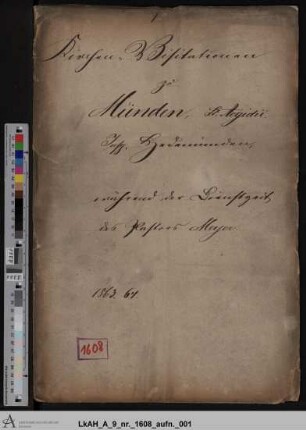 Kirchen-Visitationen
zu
Münden, St. Aegidii
Insp. Hedemünden,
während der Dienstzeit
des Pastors Meyer
1863. 64
1608
LkAH_A_9_nr._1608_aufn._001